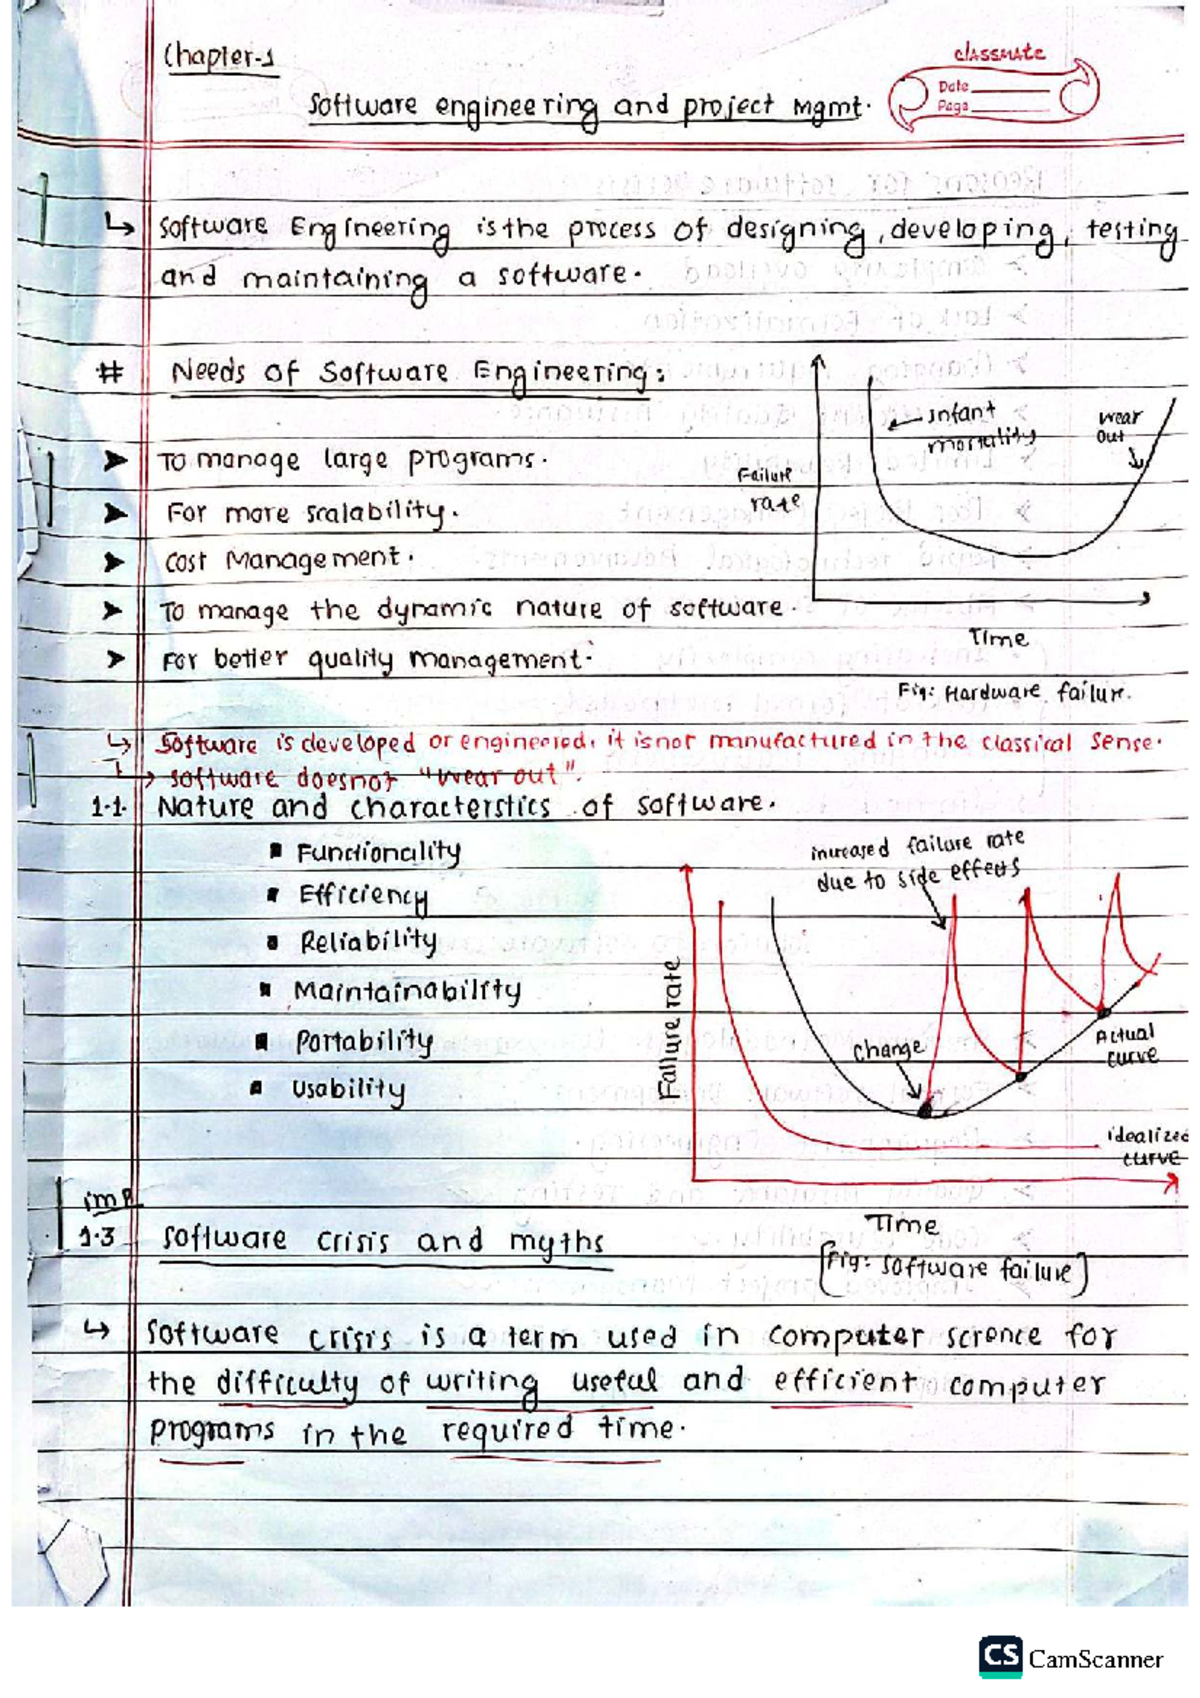 Chapter-1
classmate
Date
Page
Software engineering and project Mgmt.
↳ Software Engineering is the process of designing, developing, testing
and maintaining a software.
# Needs of Software Engineering:
➤ To manage large programs.
➤ For more scalability.
➤ Cost Management.
➤ To manage the dynamic nature of software.
➤ For better quality management.
Failure
rate
Infant
mortality
wear
out
Time
Fig: Hardware failure.
↳ Software is developed or engineered, it is not manufactured in the classical sense.
↳ software doesnot "wear out".
1.1. Nature and characterstics of software.
▪ Functionality
▪ Efficiency
▪ Reliability
▪ Maintainability
▪ Portability
▪ Usability
increased failure rate
due to side effects
Failure rate
change
Actual
curve
idealized
curve
Time
[Fig: software failure]
imp
1.3 Software crisis and myths
↳ Software crisis is a term used in computer science for
the difficulty of writing useful and efficient computer
programs in the required time.
CS CamScanner